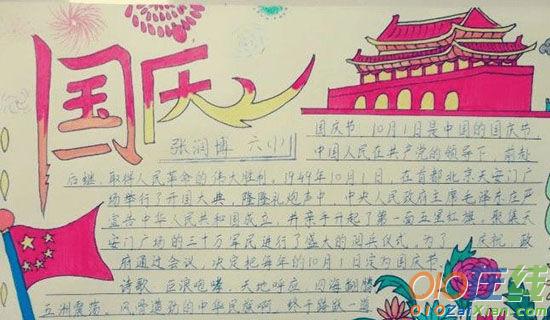 国庆
张润博 六(1)
国庆节，10月1日是中国的国庆节，
中国人民在共产党的领导下，前赴
后继，取得人民革命的伟大胜利，1949年10月1日，在首都北京天安门广
场举行了开国大典，隆隆礼炮声中，中央人民政府主席毛泽东庄严
宣告中华人民共和国成立，并亲手升起了第一面五星红旗，聚集天
安门广场的三十万军民进行了盛大的阅兵仪式，为了 庆祝，政
府通过会议，决定把每年的10月1日定为国庆节。
诗歌，巨浪咆哮，天地呼应，四海翻腾
五洲震荡，风雪遒劲的中华民族啊，终于踏踏
在线
ZaiXian.com